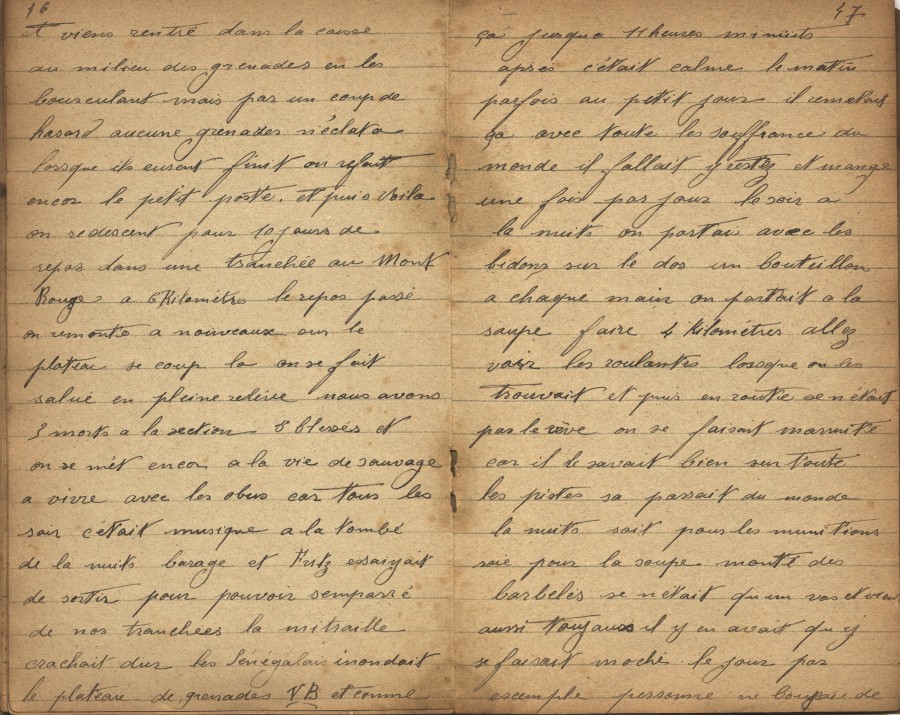 16
et viens rentré dans la caisse
au milieu des grenades en les
bousculant mais par un coup de
hasard aucune grenades n'éclata
lorsque ils eurent finit on refait
encor le petit poste. et puis voila
on redescent pour 10 jours de
repos dans une tranchée au Mont
Rouge a 6 Kilomètre le repos passé
on remonte a nouveaux sur le
plateau se coup la on se fait
salué en pleine relève nous avons
3 morts a la section 5 blessés et
on se mét encor a la vie de sauvage
a vivre avec les obus car tous les
soir cétait musique a la tombé
de la nuits barage et Fritz essaiyait
de sortir pour pouvoir semparré
de nos tranchées la mitraille
crachait dur les Sénégalais inondait
le plateau de grenades VB et comme
47
ça jusqua 11 heures minuits
aprés cétait calme le matin
parfois au petit jour il remetait
ça avec toute les souffrance du
monde il fallait y restez et mangé
une fois par jour le soir a
la nuits on partai avec les
bidons sur le dos un bouteillon
a chaque main on partait a la
soupe faire 4 Kilométres allez
voir les roulantes lorsque on les
trouvait et puis en routte se n'était
pas le rève on se faisait marmité
car il le savait bien sur toute
les pistes sa passait du monde
la nuits soit pour les munitions
soie pour la soupe monté des
barbelés se n'était qu'un vas et vien
aussi toujours il y en avait qu y
se faisait moché le jour par
escemple personne ne bougai de